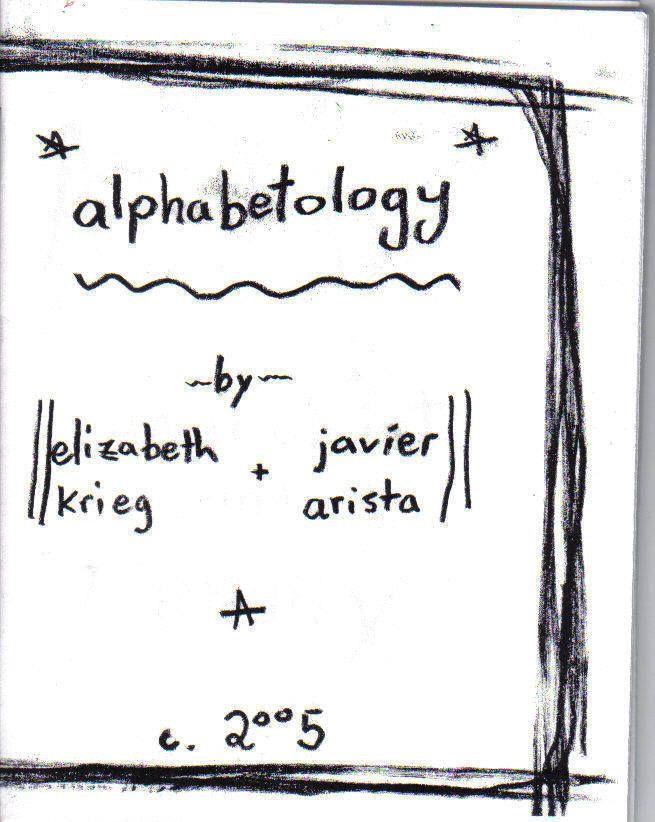 alphabetology
~by~
elizabeth + javier
krieg arista
A
c. 2005